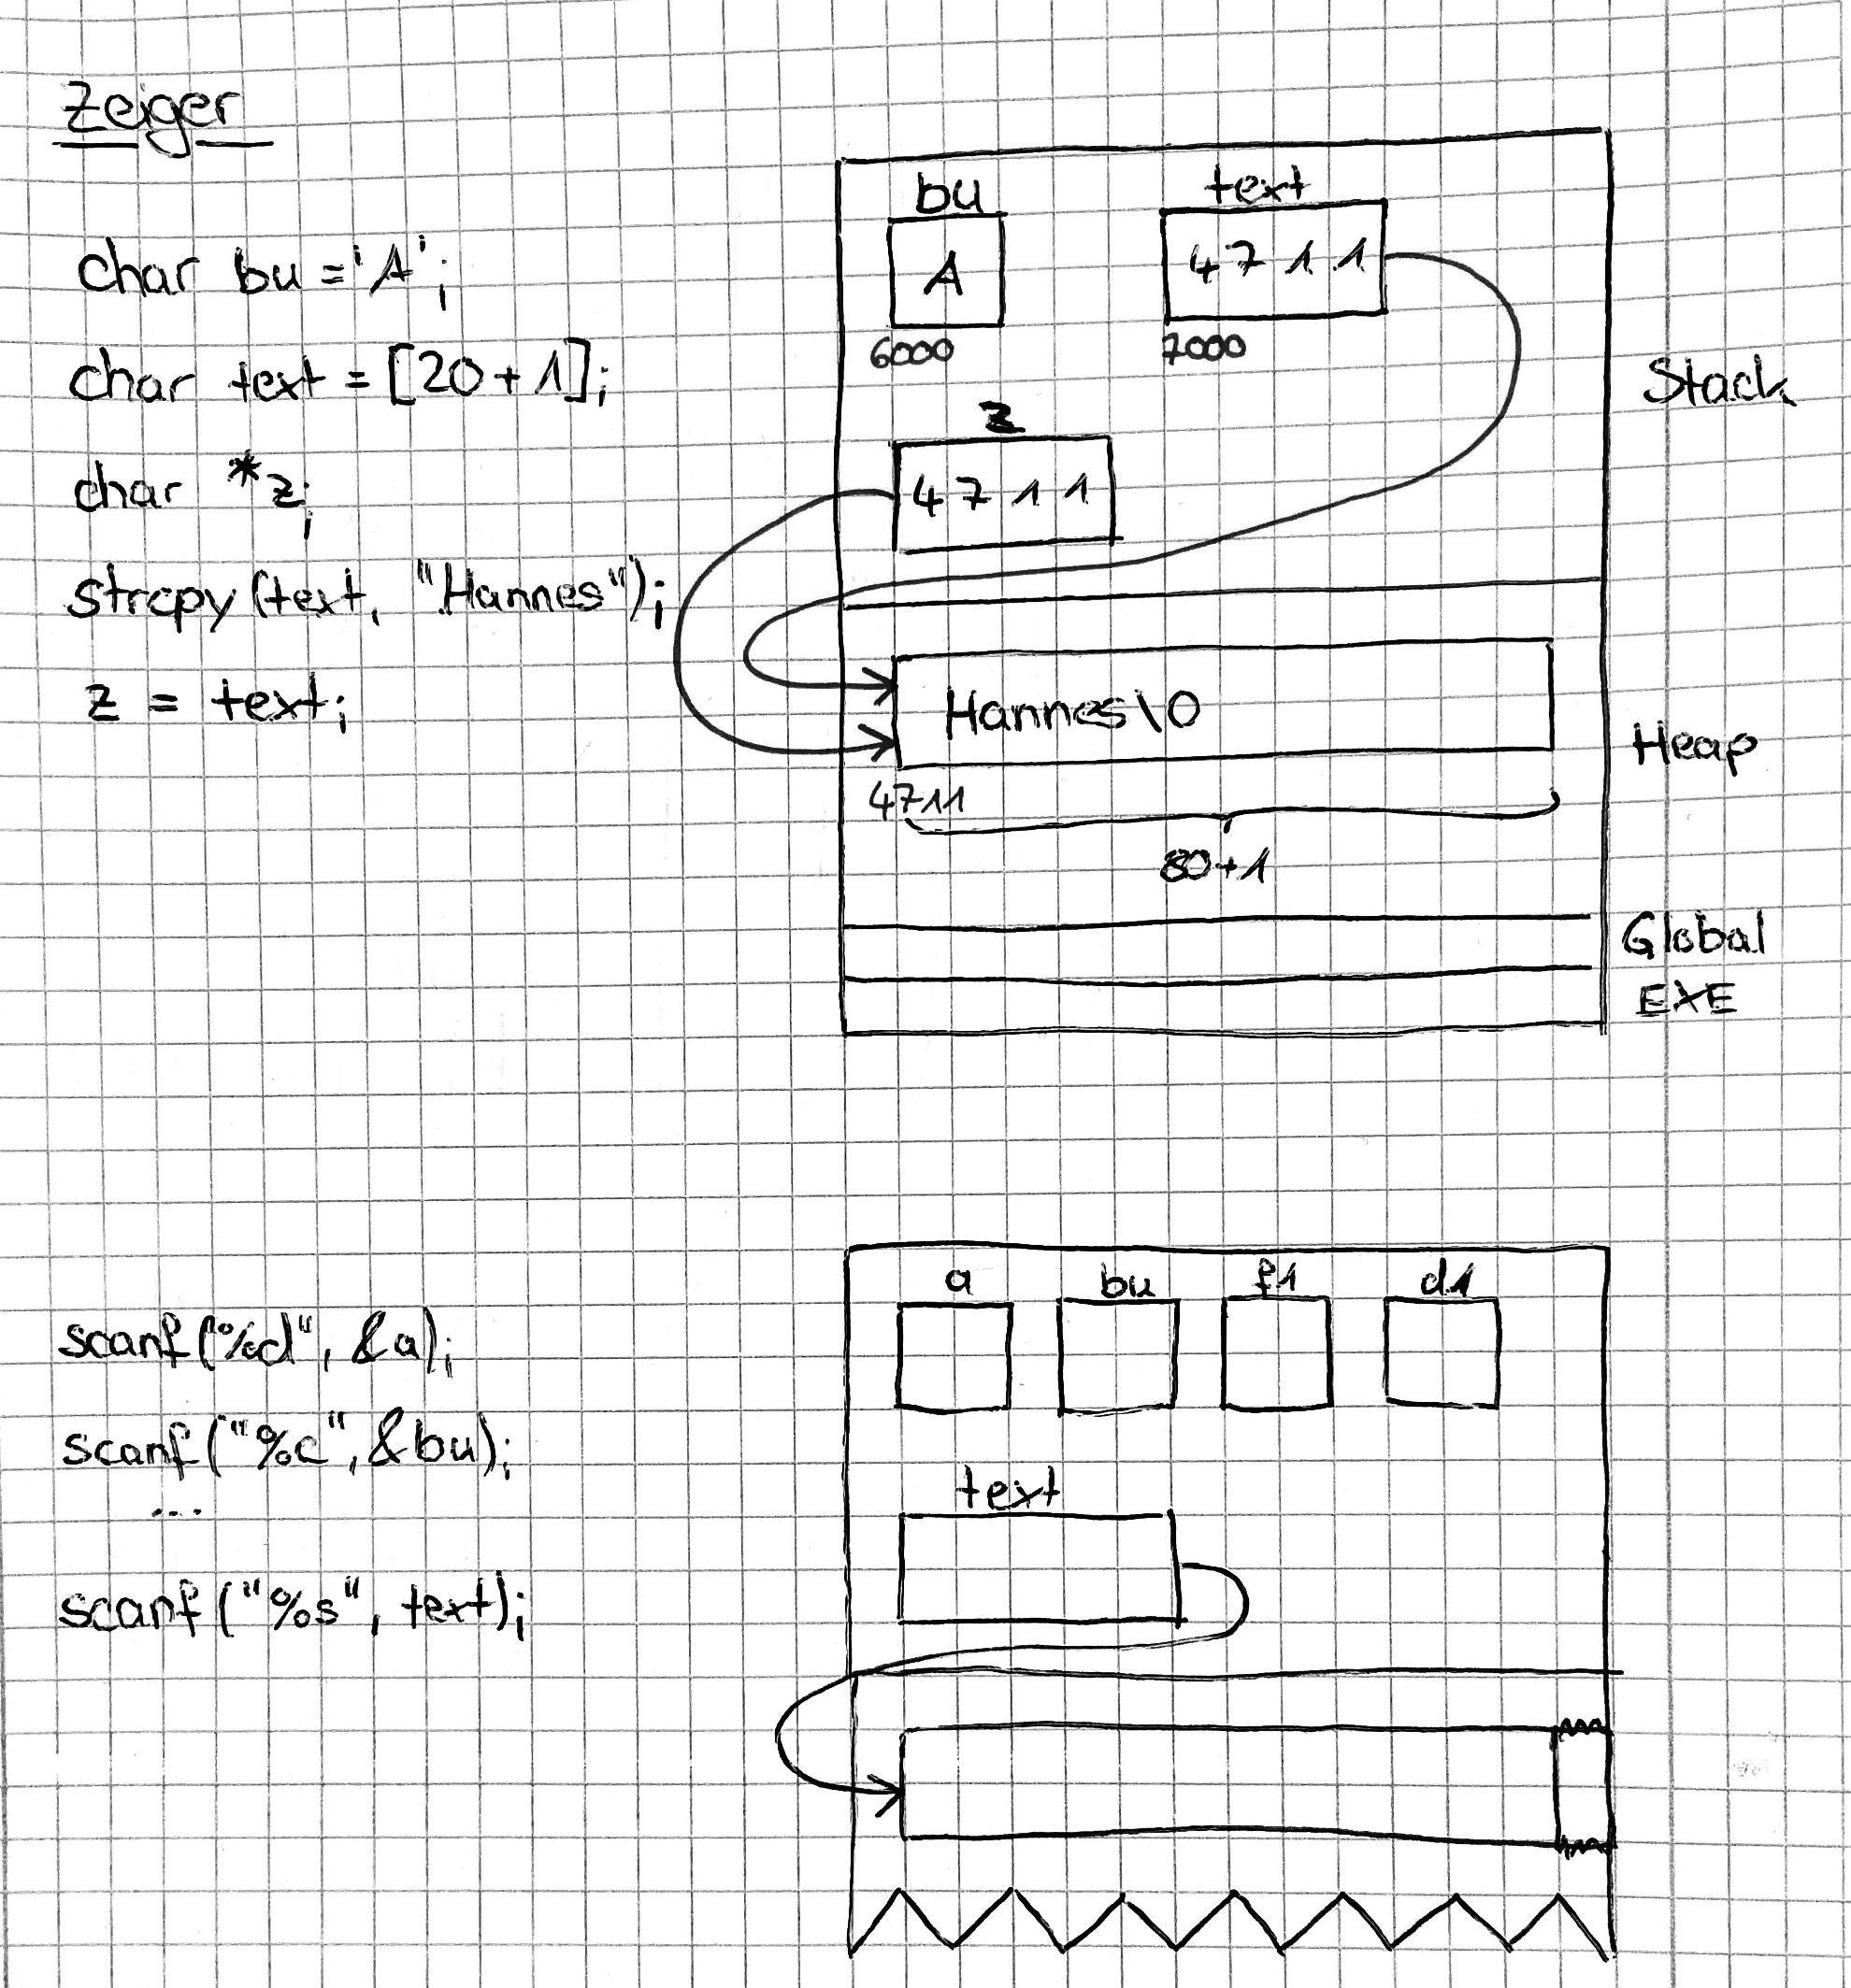 Zeiger
char bu = 'A';
char text = [20+1];
char *z;
strcpy (text, "Hannes");
z = text;
bu
text
A
4711
6000
7000
Stack
z
4711
Hannes\0
Heap
4711
80+1
Global
EXE
scanf ("%d", &a);
scanf ("%c", &bu);
...
scanf ("%s", text);
a bu f1 d1
text